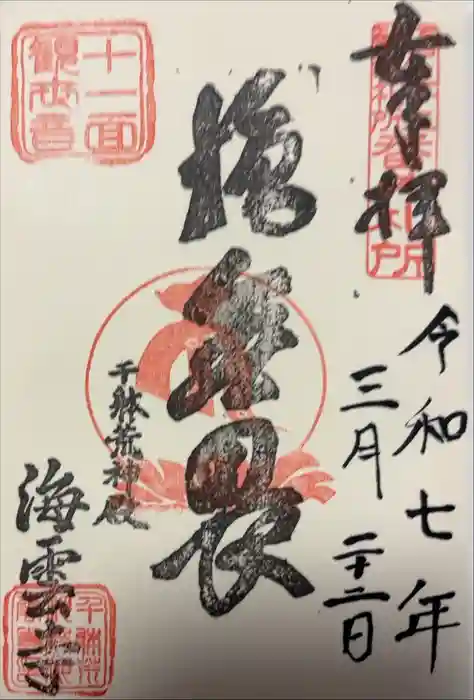 奉拝
令和七年
三月二十二日
施無畏
十一面
観世音
千躰荒神殿
海雲寺